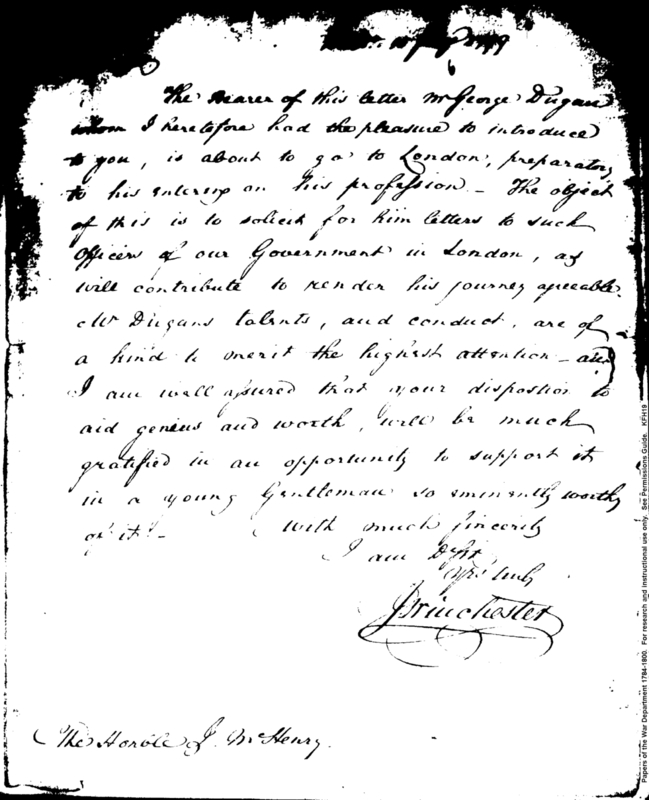 1799
The Bearer of this letter Mr George Dugan
whom I heretofore had the pleasure to introduce
to you, is about to go to London, preparatory
to his entering on his profession - The object
of this is to solicit for him letters to such
Officers of our Government in London, as
will contribute to render his journey agreeable.
Mr Dugans talents, and conduct, are of
a kind to merit the highest attention - and
I am well assured that your dispostion to
aid genius and worth, will be much
gratified in an opportunity to support it
in a young Gentleman so eminently worthy
of it. -
With much sincerity
I am Dr Sir
Yrs truly
J Winchester
The Honble J. McHenry.
Papers of the War Department 1784-1800. For research and instructional use only. See Permissions Guide. KFH19